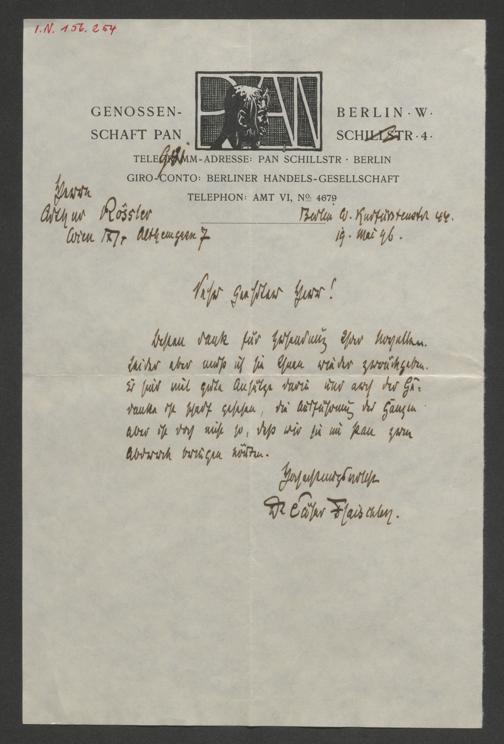 I.N. 156.264
PAN
GENOSSEN-
SCHAFT PAN
BERLIN · W ·
SCHILLSTR · 4 ·
TELEGRAMM-ADRESSE: PAN SCHILLSTR · BERLIN
GIRO-CONTO: BERLINER HANDELS-GESELLSCHAFT
TELEPHON: AMT VI, No 4679
Herrn
Arthur Rössler
Wien
Berlin W. Kurfürstenstr 44.
19. Mai 96.
Sehr geehrter Herr!
Besten Dank für Zusendung Ihrer Novellen.
Leider aber muß ich sie Ihnen wieder zurückgeben.
Es sind viel gute Ansätze darin und auch der Ge-
danke ist scharf gesehen, die Ausführung des Ganzen
aber ist doch nicht so, daß wir sie im Pan zum
Abdruck bringen könnten.
Hochachtungsvollst
Dr Cäsar Flaischlen.